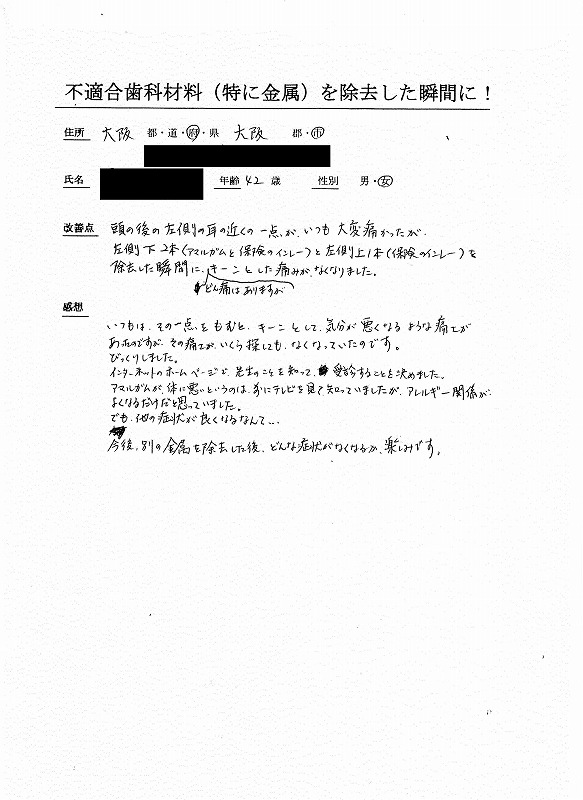 不適合歯科材料（特に金属）を除去した瞬間に！
住所 大阪 都・道・府・県 大阪 郡・市
氏名 年齢 42 歳 性別 男・女
改善点 頭の後の左側の耳の近くの一点が、いつも大変痛かったが、
左側下2本(アマルガムと保険のインレー)と左側上1本(保険のインレー)を
除去した瞬間に、キーンとした痛みが、なくなりました。
どん痛はありますが
感想
いつもは、その一点をもむと、キーンとして、気分が悪くなるような痛てが
あったのですが、その痛てが、いくら探しても、なくなっていたのです。
びっくりしました。
インターネットのホームページで、先生のことを知って、受診することを決めました。
アマルガムが、体に悪いというのは、前にテレビを見て知っていましたが、アレルギー関係が、
よくなるだけだと思っていました。
でも、他の症状が良くなるなんて…
今後、別の金属を除去した後、どんな症状がなくなるか、楽しみです。